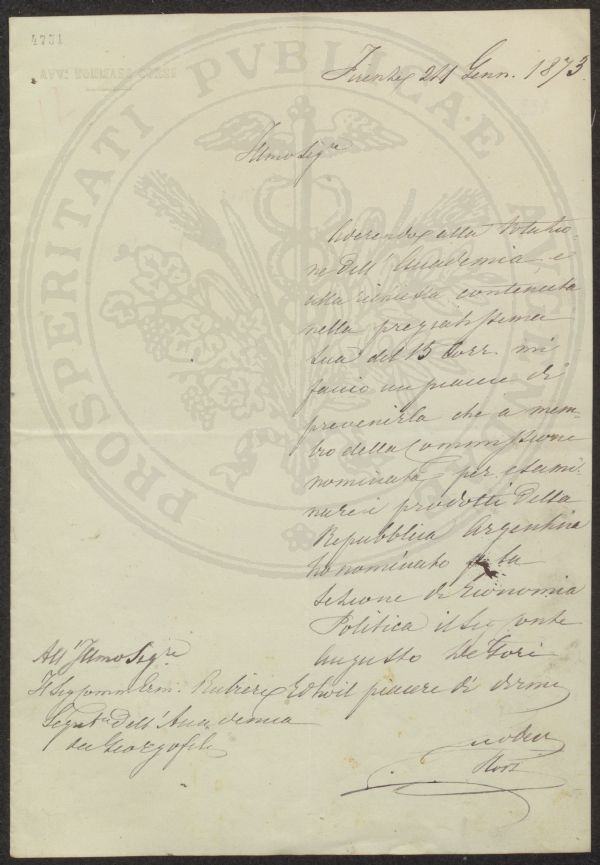 4731
AVV: TOMMASO CORSI
PROSPERITATI PVBLICAE AVGENDAE
Firenze 24 Genn. 1873.
Illmo Sigre
Aderendo alla votazio-
ne dell' Accademia, e
alla richiesta contenuta
nella pregiatissima
sua del 15 Corr. mi
faccio un piacere di
prevenirla che a mem-
bro della Commissione
nominata per esami-
nare i prodotti della
Repubblica Argentina
ho nominato per la
Sezione di Economia
Politica il Sig. Conte
Augusto De Gori
Ed ho il piacere di dirmi
All' Illmo Sigre
Il Sig Comm Erm. Rubieri
Segretº dell' Accademia
dei Georgofili
Corsi